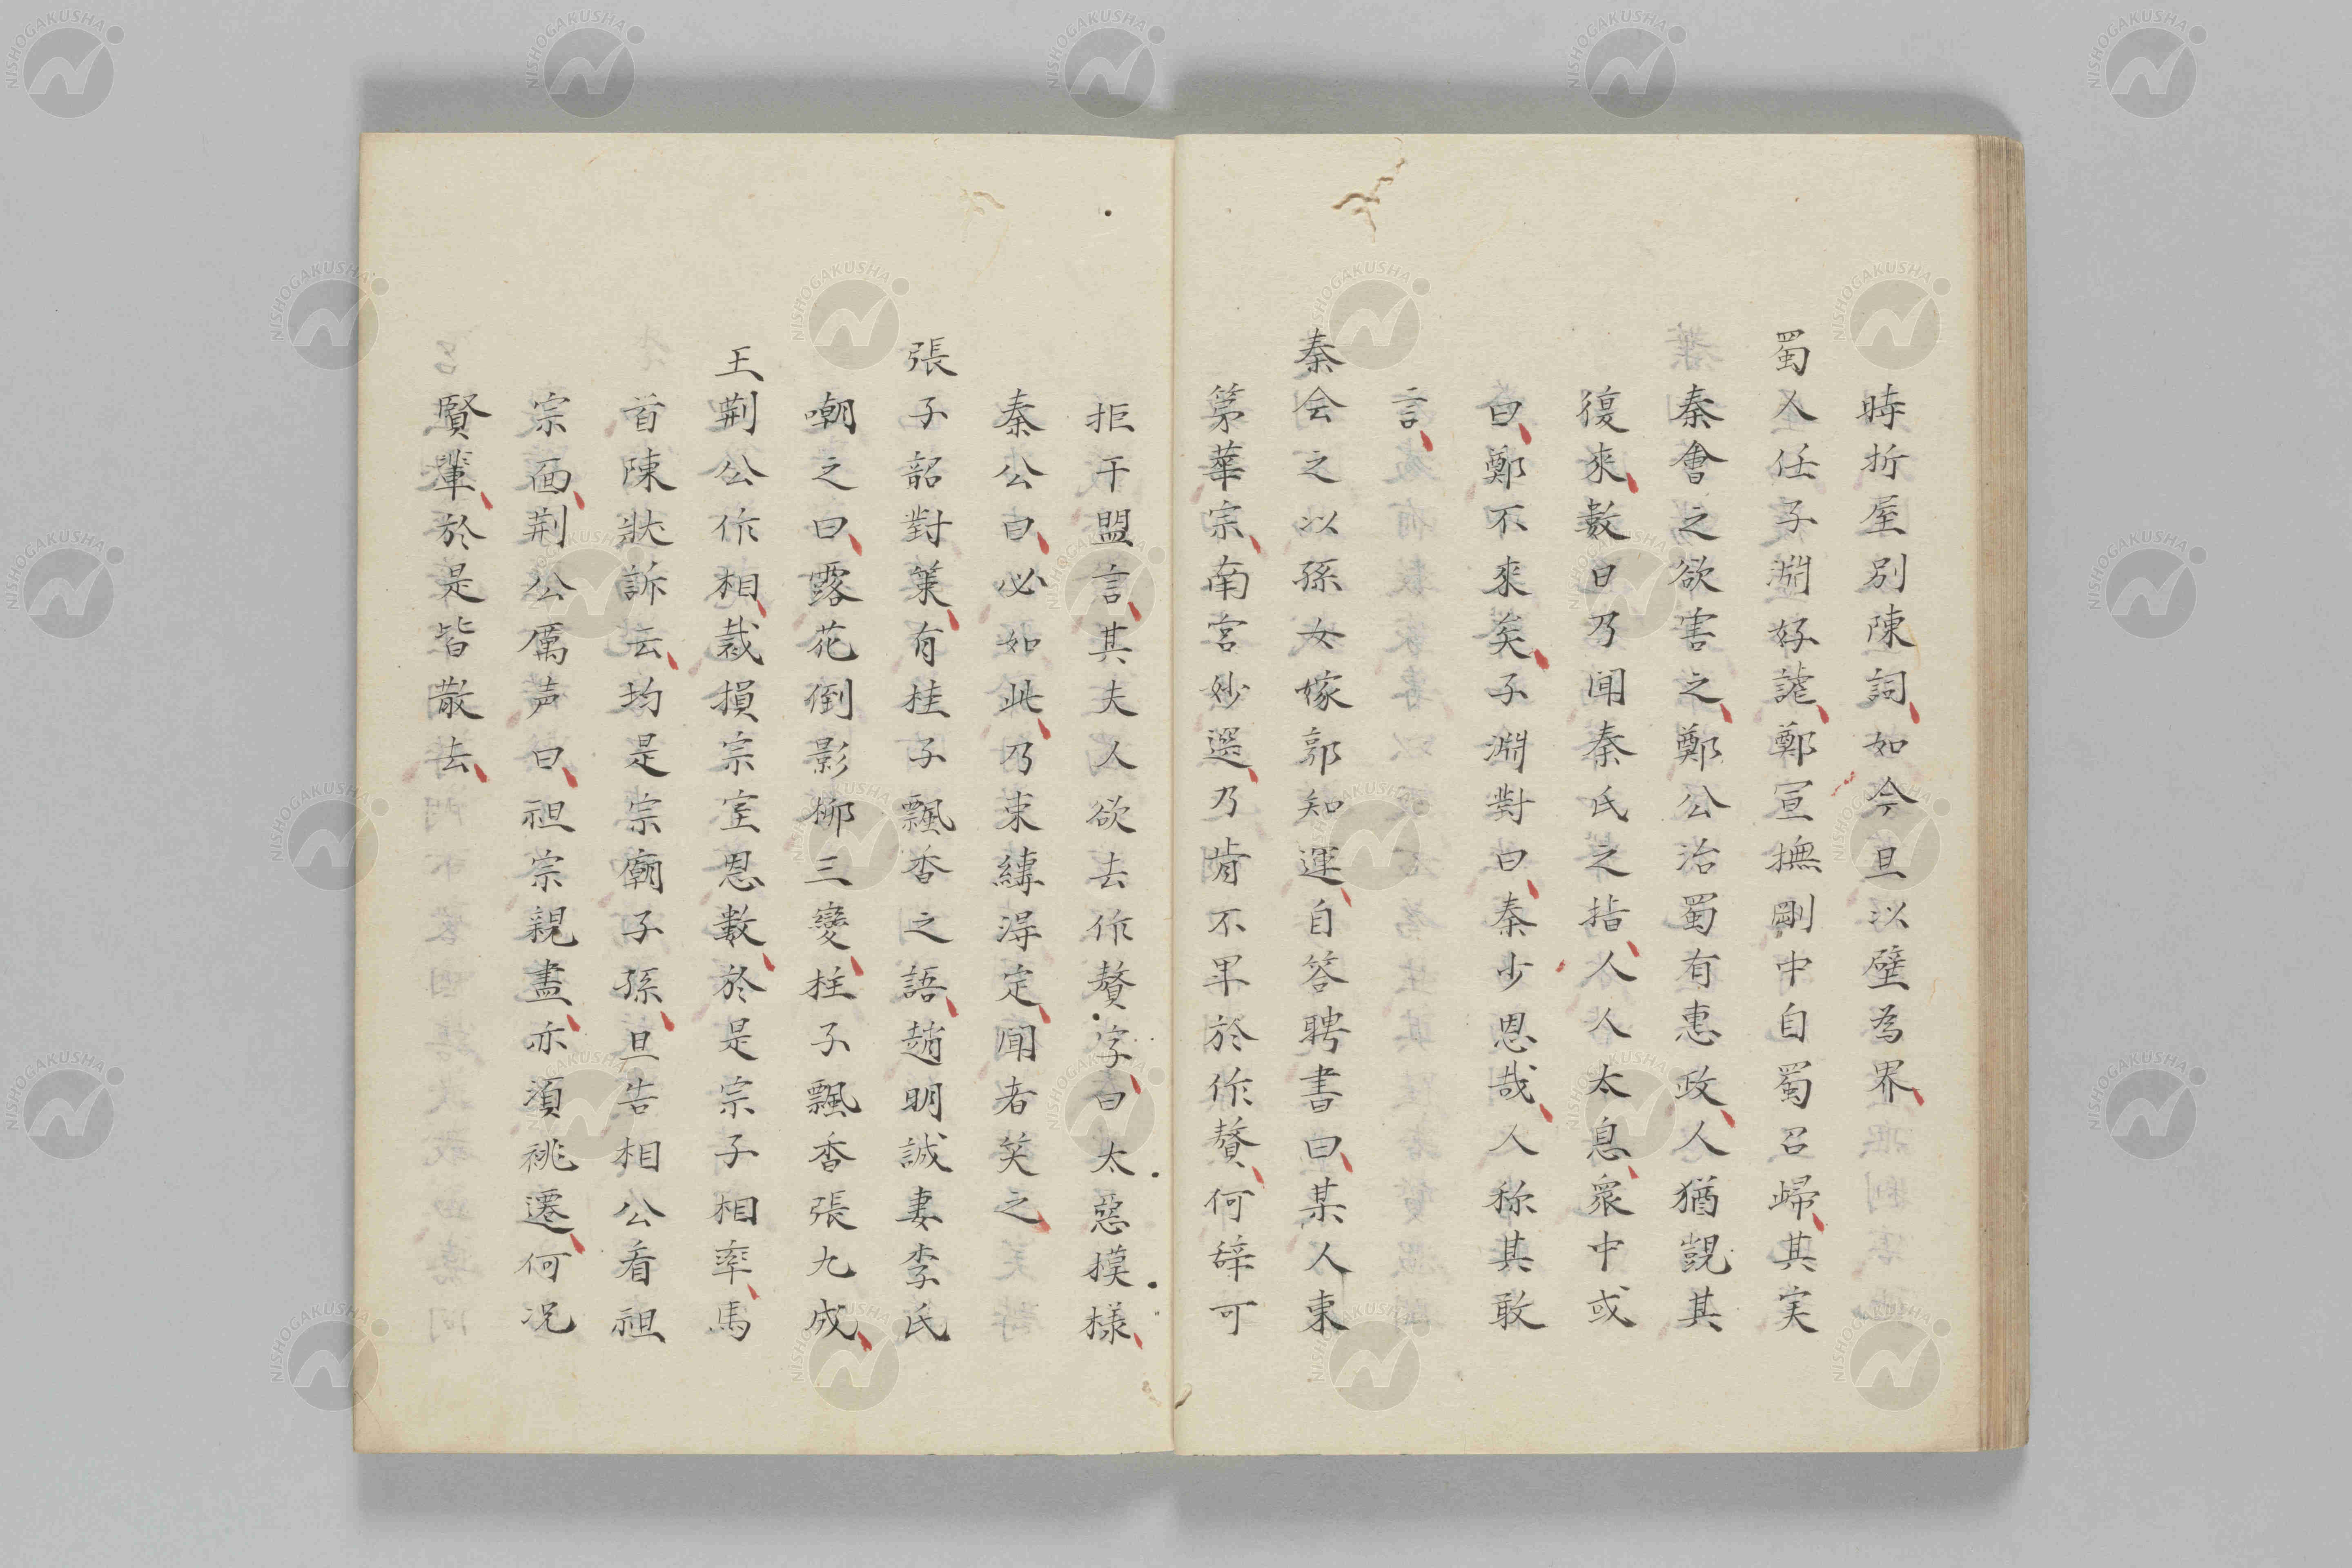 時折屋別陳詞如今且以壁為界
蜀人任子淵好謔鄭宣撫剛中自蜀召歸其実
秦會之欲害之鄭公治蜀有恵政人猶覬其
復來數日乃聞秦氏之指人人太息衆中或
曰鄭不來矣子淵對曰秦少恩哉人称其敢
言
秦会之以孫女嫁郭知運自答聘書曰某人東
第華宗南宮妙選乃肯不卑於作贅何辞可
拒于盟言其夫人欲去作贅字曰太惡摸樣
秦公曰必如此乃束縛得定聞者笑之
張子韶對策有桂子飄香之語趙明誠妻李氏
嘲之曰露花倒影柳三變桂子飄香張九成
王荆公作相裁損宗室恩數於是宗子相率馬
首陳狀訴云均是宗廟子孫且告相公看祖
宗面荆公厲声曰祖宗親盡亦須祧遷何况
賢輩於是皆散去
NISHOGAKUSHA